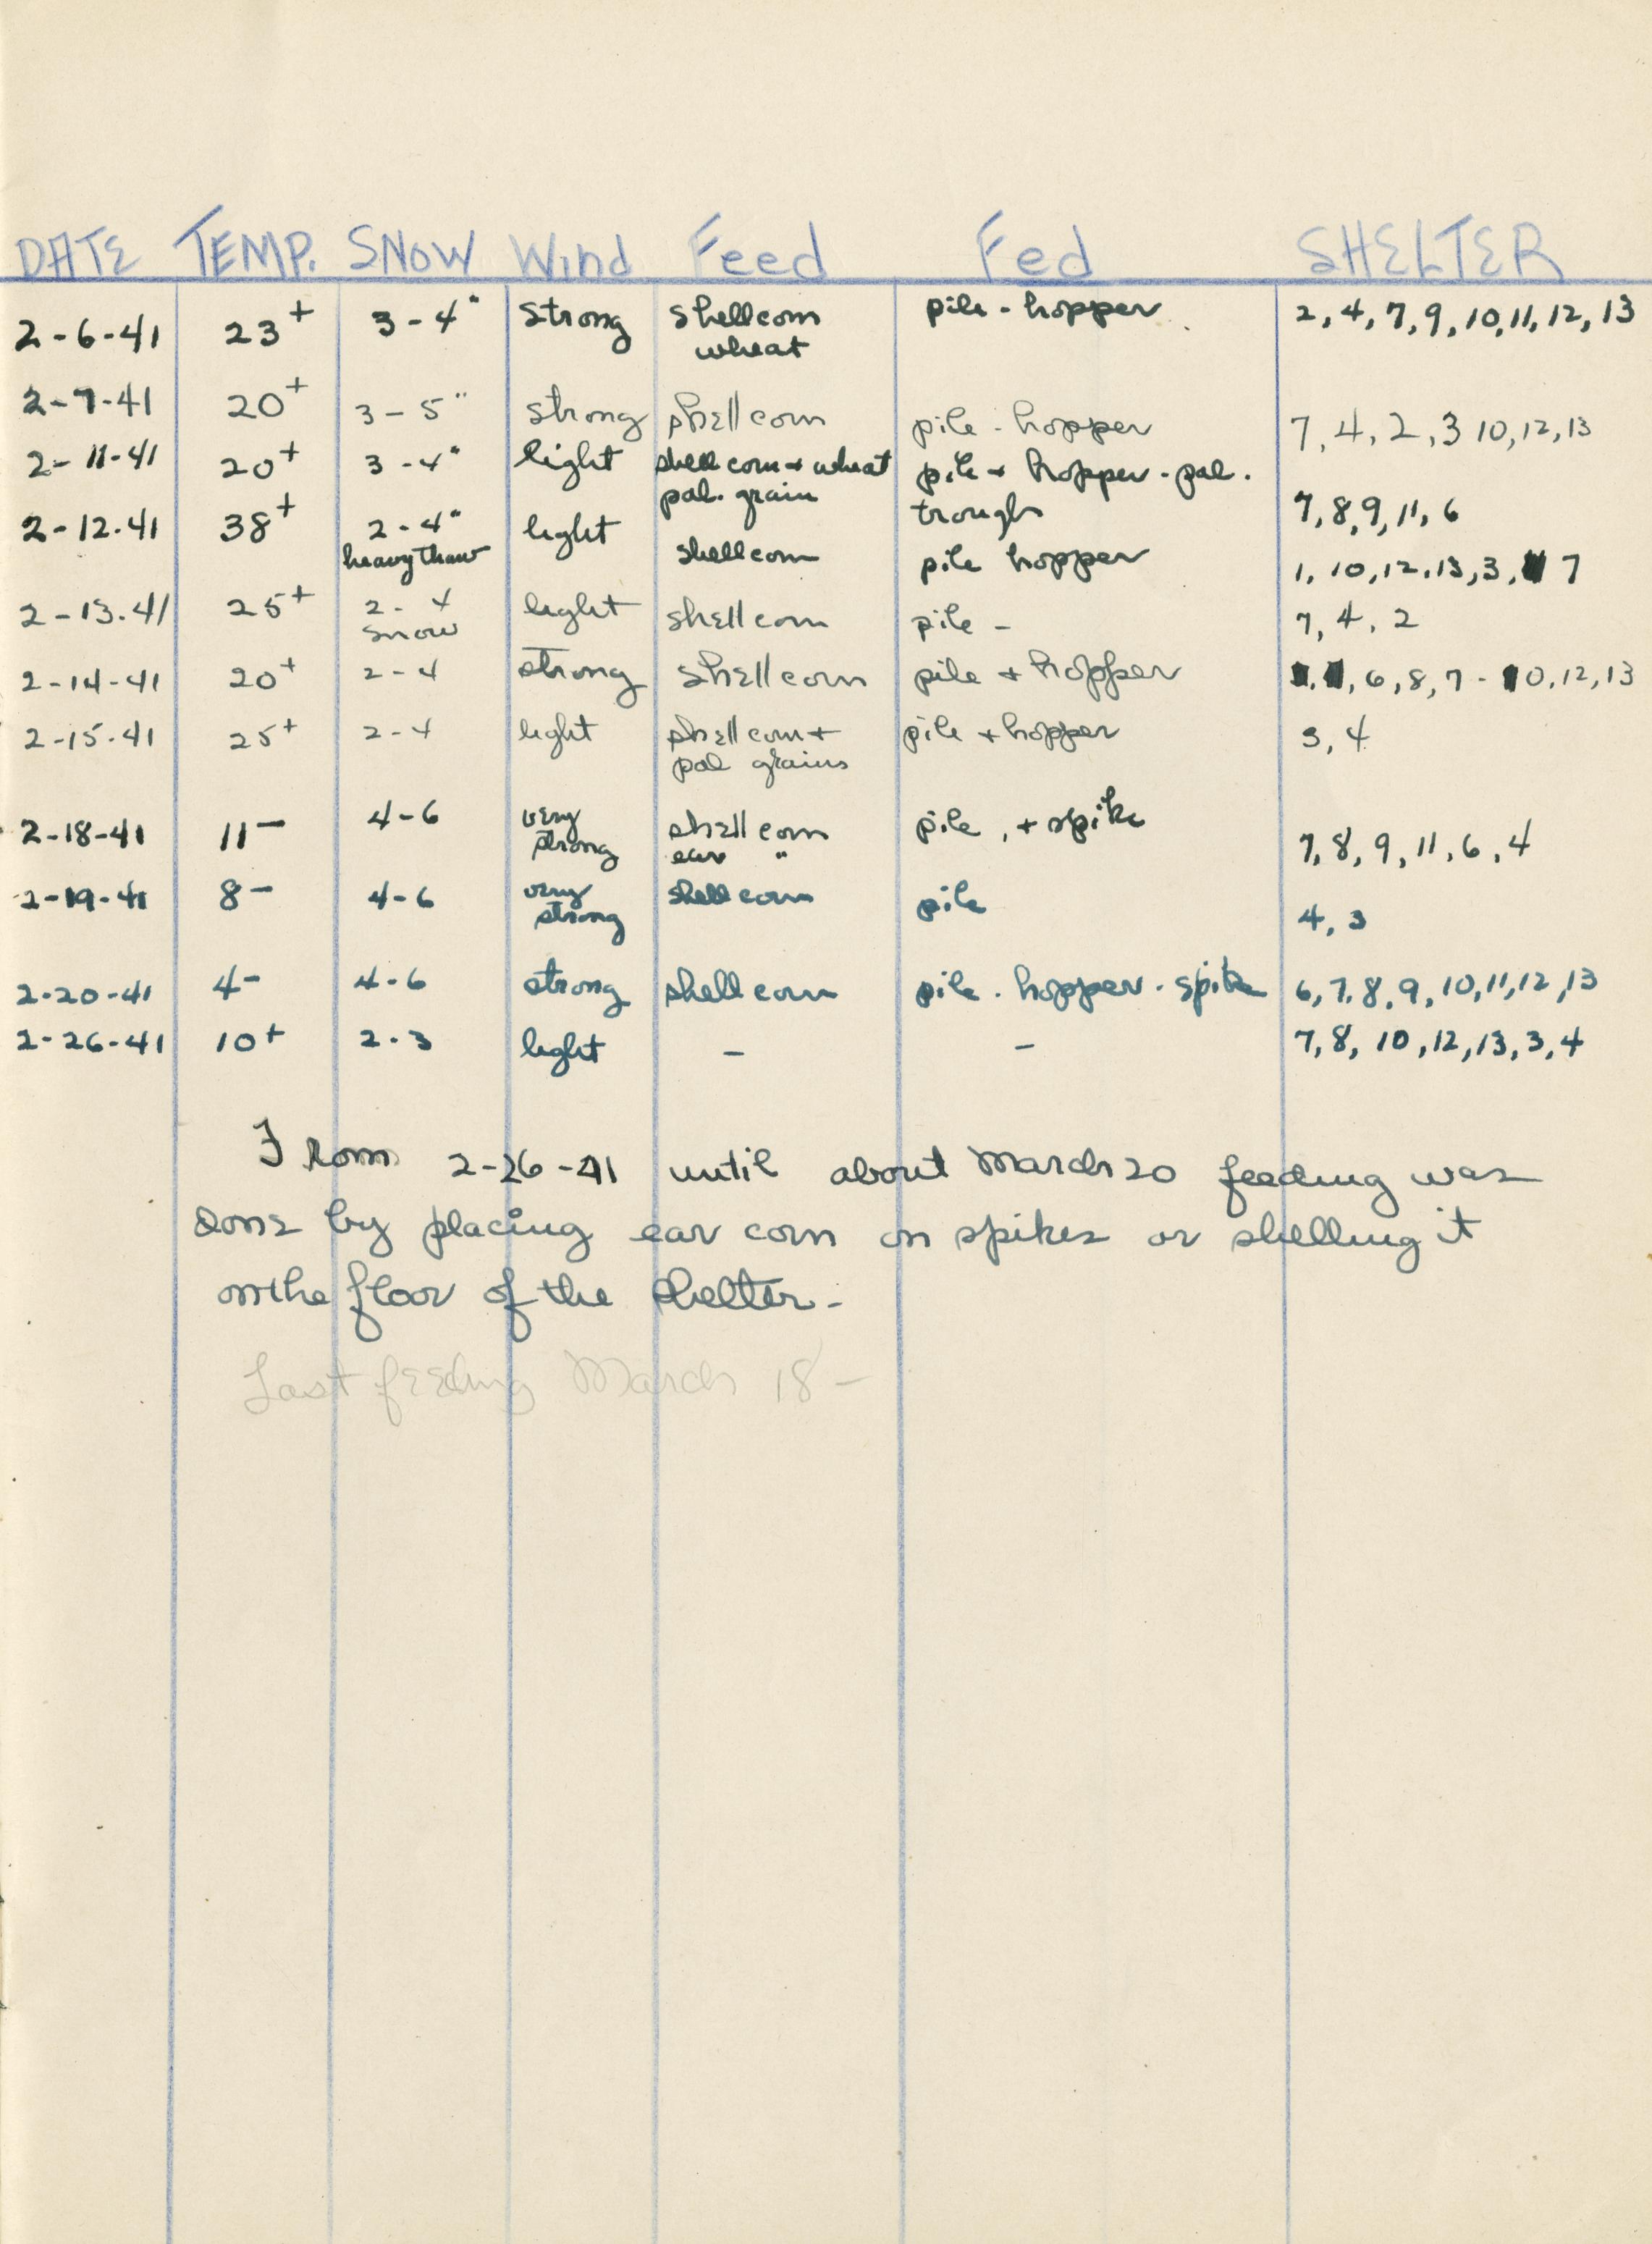 DATE TEMP. SNOW Wind Feed Fed SHELTER
2-6-41 23+ 3-4" strong shellcorn pile - hopper 2, 4, 7, 9, 10, 11, 12, 13
wheat
2-7-41 20+ 3-5" strong shell corn pile - hopper 7, 4, 2, 3 10, 12, 13
2-11-41 20+ 3-4" light shell corn + wheat pile + hopper - pal.
pal. grain trough 7, 8, 9, 11, 6
2-12-41 38+ 2-4" light shellcorn pile hopper 1, 10, 12, 13, 3, 7
heavy thaw
2-13-41 25+ 2-4 light shell corn pile - 7, 4, 2
snow
2-14-41 20+ 2-4 strong shell corn pile + hopper 6, 8, 7 - 10, 12, 13
2-15-41 25+ 2-4 light shell corn + pile + hopper 3, 4
pal grains
2-18-41 11- 4-6 very shell corn pile, + spike 7, 8, 9, 11, 6, 4
strong ear "
2-19-41 8- 4-6 very shell corn pile 4, 3
strong
2-20-41 4- 4-6 strong shell corn pile - hopper - spike 6, 7, 8, 9, 10, 11, 12, 13
2-26-41 10+ 2-3 light - - 7, 8, 10, 12, 13, 3, 4
From 2-26-41 until about March 20 feeding was
done by placing ear corn on spikes or shelling it
on the floor of the shelter -
Last feeding March 18 -